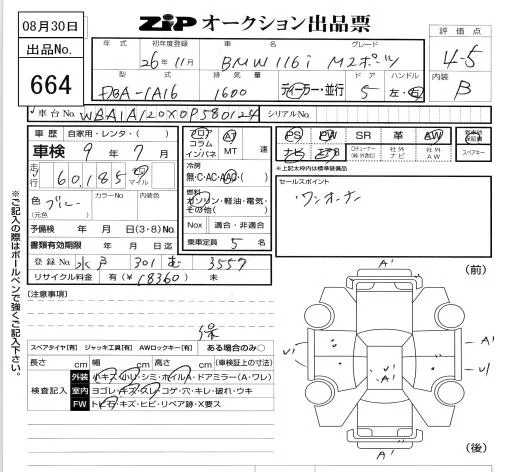 08月30日
ZIP オークション出品票
出品No.
664
年式 初年度登録 車名 グレード
26年11月 BMW 116i Mスポーツ
型式 排気量 ディーラー・並行 ドア ハンドル
DBA-1A16 1600 5 左・右
評価点
4.5
内装
B
車台No. WBA1A120X0P580124 シリアルNo.
車歴 自家用・レンタ・( )
車検 9年7月
走行 60,185 km マイル
色 ブルー カラーNo. 内装色
(元色)
予備検 年 月 日(3・8)公認
書類有効期限 年 月 日迄
登録No. 水戸 301 む 3557
リサイクル料金 有(¥18360) 未
フロア コラム インパネ
AT MT 速
冷房
無・C・AC・AAC・( )
燃料
ガソリン・軽油・電気・その他( )
Nox 適合・非適合
乗車定員 5 名
PS PW SR 革 AW
ナビ エアB 社外ナビ 社外AW
新車時保証書
スペアキー
*上記太枠内は標準装備品
セールスポイント
ワンオーナー
※ご記入の際はボールペンで強くご記入下さい。
[注意事項]
保
スペアタイヤ[有] ジャッキ工具[有] AWロックキー[有] ある場合のみ○
長さ cm 幅 cm 高さ cm (車検証上の寸法)
検査記入
外装 小キズ・小凹・シミ・ホイルA・ドアミラー(A・ワレ)
室内 ヨゴレ・キズ・スレ・コゲ・穴・キレ・破れ・ウキ
FW トビ石・キズ・ヒビ・リペア跡・X要ス
(前)
A1
U1
A1
U1
U1
A1
A1
(後)